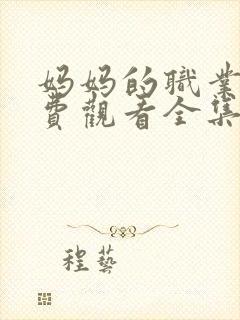 妈妈的職業
費觀看全集
程藝